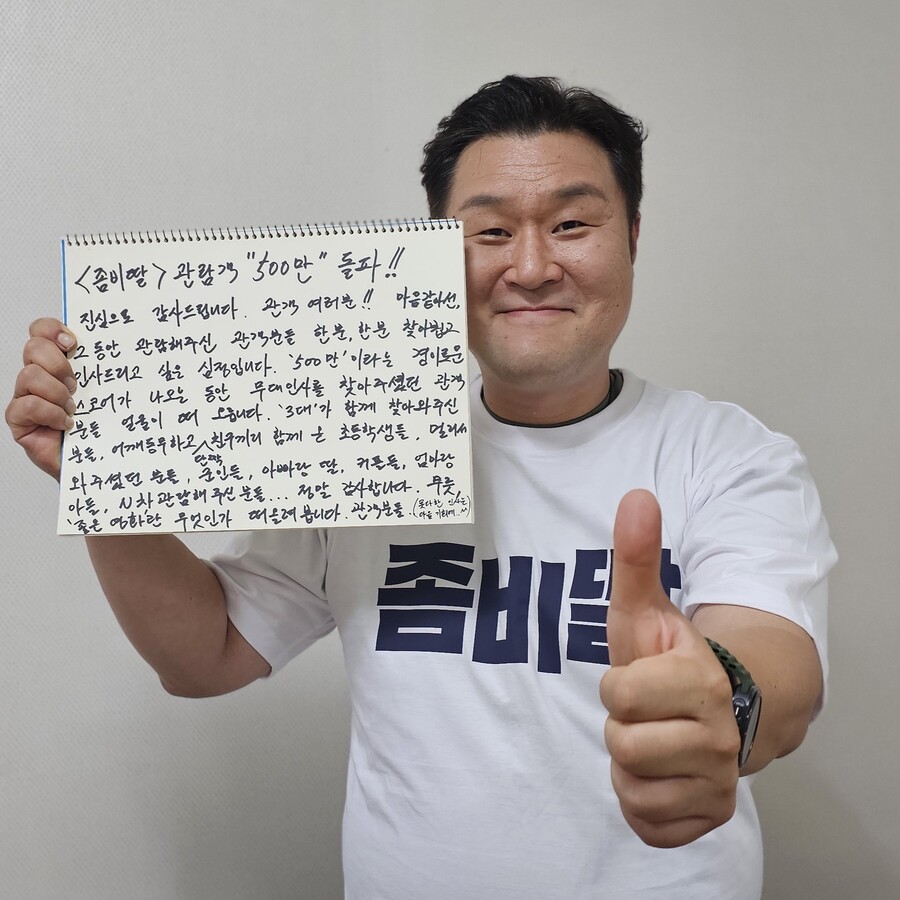 <좀비딸> 관람객 "500만" 돌파!!
진심으로 감사드립니다. 관객 여러분!! 마음같아선,
그동안 관람해주신 관객분들 한분, 한분 찾아뵙고
인사드리고 싶은 심정입니다. '500만'이라는 경이로운
스코어가 나오는 동안 무대인사를 찾아주셨던 관객
분들 얼굴이 떠 오릅니다. '3대'가 함께 찾아와주신
분들, 어깨동무하고 단짝 친구끼리 함께 온 초등학생들, 멀리서
와주셨던 분들, 군인들, 아빠랑 딸, 커플들, 엄마랑
아들, N차관람해주신 분들... 정말 감사합니다. 무릇,
'좋은 영화'란 무엇인가 떠올려 봅니다. 관객분들.
(못다한 인사는
다음 기회에...^^)
좀비딸